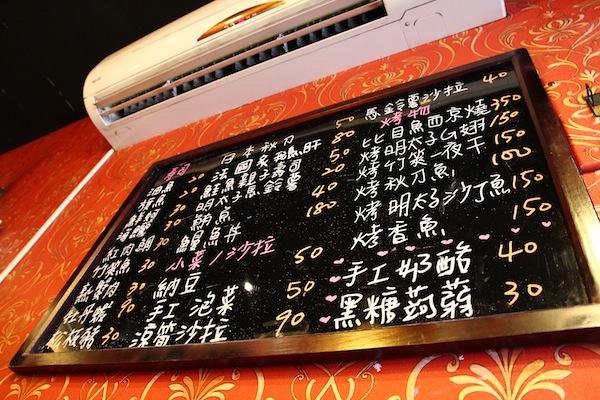 壽司
油魚 30
旗魚
竹筴魚 30
牡丹蝦 90
松板豬 30
日本秋刀 50
法國炙鮟魚肝 80
鮭魚親子壽司 50
明太子馬鈴薯 40
鮪魚 20
鰻魚丼 180
小菜/沙拉
納豆 50
手工泡菜 50
涼筍沙拉 90
馬鈴薯沙拉 40
烤物
比目魚西京燒 350
烤明太子G翅 150
烤竹筴一夜干 150
烤秋刀魚 100
烤明太子沙丁魚 150
烤香魚 150
手工奶酪 40
黑糖蒟蒻 30